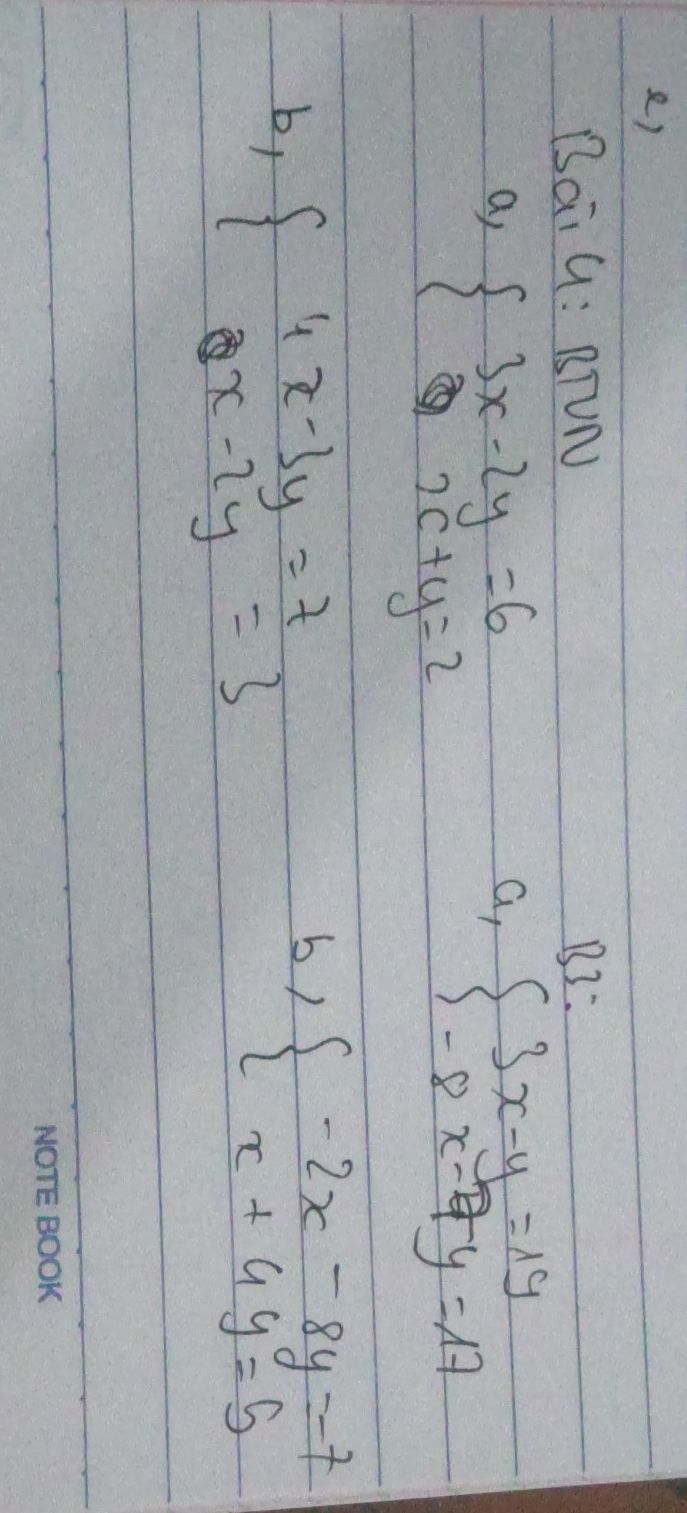 e,
Bài 4: BTVN
a, { 3x - 2y = 6
x + y = 2
b, { 4x - 3y = 7
x - 2y = 3
B3:
a, { 3x - y = 19
-8x - y = 17
b, { -2x - 8y = -7
x + 4y = 5
NOTE BOOK